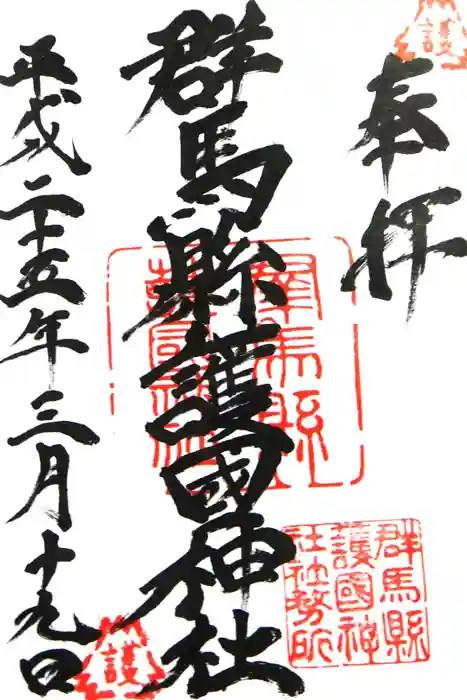 奉拝
護
群馬縣護國神社
群馬縣
護國神
社社務所
平成二十五年三月十九日
護